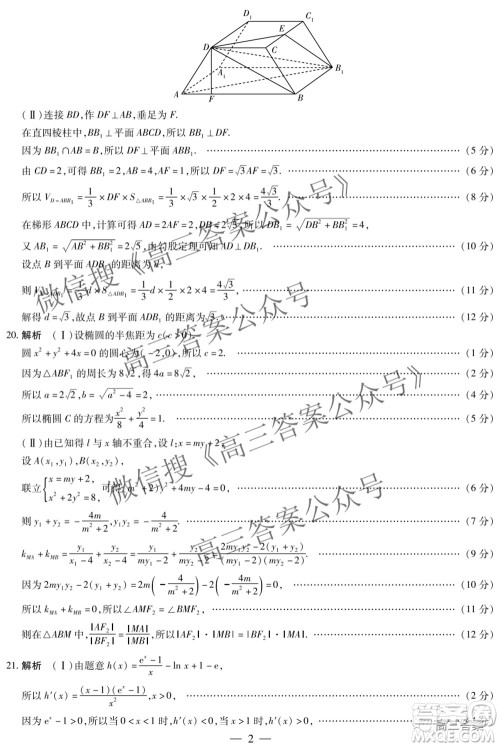 D₁
C₁
E
D
C
A₁
B₁
A
F
B
(Ⅱ)连接 BD,作 DF⊥AB,垂足为 F.
在直四棱柱中,BB₁⊥平面 ABCD,所以 BB₁⊥DF.
因为 BB₁∩AB=B,所以 DF⊥平面 ABB₁. (5 分)
由 CD=2,可得 BB₁=2,AB=4,AF=1,所以 DF=√3AF=√3. (6 分)
所以 V_{D-ABB₁}=1/3×DF×S_{△ABB₁}=1/3×√3×1/2×2×4=4√3/3. (8 分)
在梯形 ABCD 中,计算可得 AD=2AF=2,DB=2√3,所以 DB₁=√(DB²+BB₁²)=4.
又 AB₁=√(AB²+BB₁²)=2√5,由勾股定理可知 AD⊥DB₁. (10 分)
设点 B 到平面 ADB₁ 的距离为 d,
则 1/3×d×S_{△ADB₁}=1/3×d×1/2×2×4=4√3/3. (11 分)
解得 d=√3,故点 B 到平面 ADB₁ 的距离为√3. (12 分)
20. 解析 (Ⅰ)设椭圆的半焦距为 c(c>0).
圆 x²+y²+4x=0 的圆心为(-2,0),所以 c=2. (2 分)
因为△ABF₁ 的周长为 8√2,所以 4a=8√2, (3 分)
所以 a=2√2,b=√(a²-4)=2, (4 分)
所以椭圆 C 的方程为 x²/8+y²/4=1. (5 分)
(Ⅱ)由已知得 l 与 x 轴不重合,设 l:x=my+2,
设 A(x₁,y₁),B(x₂,y₂),
联立{x=my+2, (6 分)
则 y₁+y₂=-4m/(m²+2),y₁y₂=-4/(m²+2). (7 分)
k_{MA}+k_{MB}=y₁/(x₁-4)+y₂/(x₂-4)=y₁/(my₁-2)+y₂/(my₂-2)=(2my₁y₂-2(y₁+y₂))/((my₁-2)(my₂-2)), (9 分)
因为 2my₁y₂-2(y₁+y₂)=2m(-4/(m²+2))-2(-4m/(m²+2))=0, (10 分)
所以 k_{MA}+k_{MB}=0,所以∠AMF₂=∠BMF₂, (11 分)
则在△ABM 中,|AF₂|/|BF₂|=|MA|/|MB|,所以|AF₂|·|MB|=|BF₂|·|MA|. (12 分)
21. 解析 (Ⅰ)由题意 h(x)=(eˣ-1)/x-ln x+1-e,
所以 h′(x)=(x-1)(eˣ-1)/x²,x>0, (2 分)
因为 eˣ-1>0,所以当 0<x<1 时,h′(x)<0,当 x>1 时,h′(x)>0,
— 2 —
微信搜《高三答案公众号》
微信搜《高三答案公众号》
高三答案公众号
高三答案